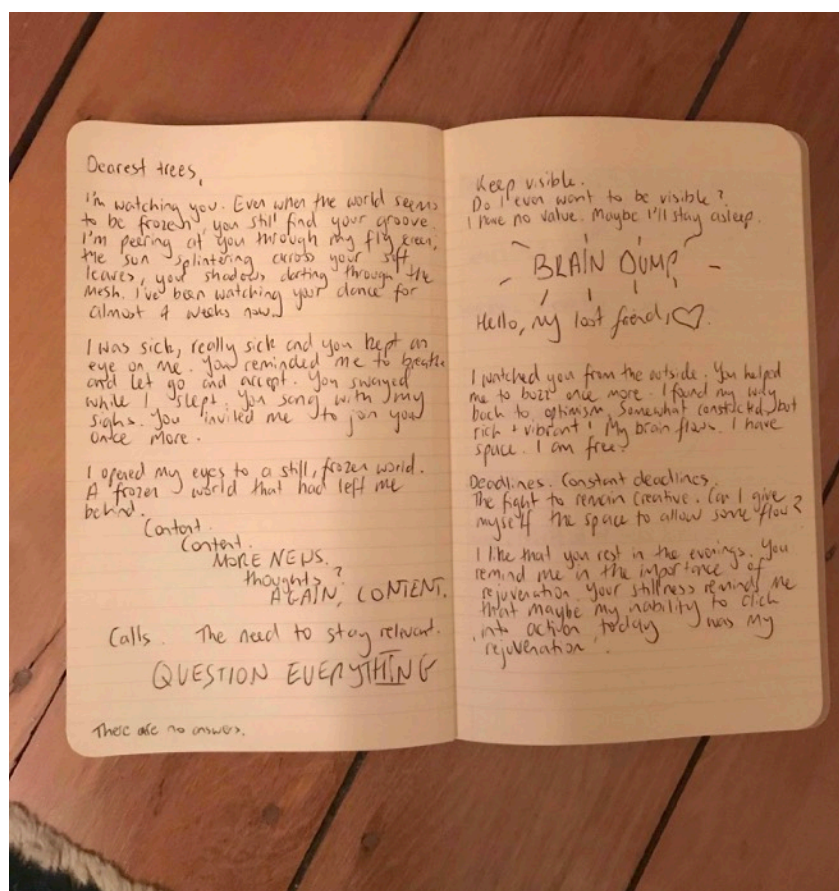 Dearest trees,
I'm watching you. Even when the world seems
to be frozen, you still find your groove.
I'm peering at you through my fly screen,
the sun splintering across your soft
leaves, your shadows darting through the
mesh. I've been watching your dance for
almost 4 weeks now.
I was sick, really sick and you kept an
eye on me. You reminded me to breathe
and let go and accept. You swayed
while I slept. You sang with my
sighs. You invited me to join you
once more.
I opened my eyes to a still, frozen world.
A frozen world that had left me
behind.
Content.
Content.
MORE NEWS.
thoughts?
AGAIN, CONTENT.
Calls. The need to stay relevant.
QUESTION EVERYTHING
There are no answers.
Keep visible.
Do I even want to be visible?
I have no value. Maybe I'll stay asleep.
BRAIN DUMP
Hello, my lost friend, ♡.
I watched you from the outside. You helped
me to buzz once more. I found my way
back to optimism. Somewhat constricted, but
rich + vibrant! My brain flows. I have
space. I am free?
Deadlines. Constant deadlines.
The fight to remain creative. Can I give
myself the space to allow some flow?
I like that you rest in the evenings. You
remind me in the importance of
rejuvenation. Your stillness reminds me
that maybe my inability to click
into action today was my
rejuvenation.